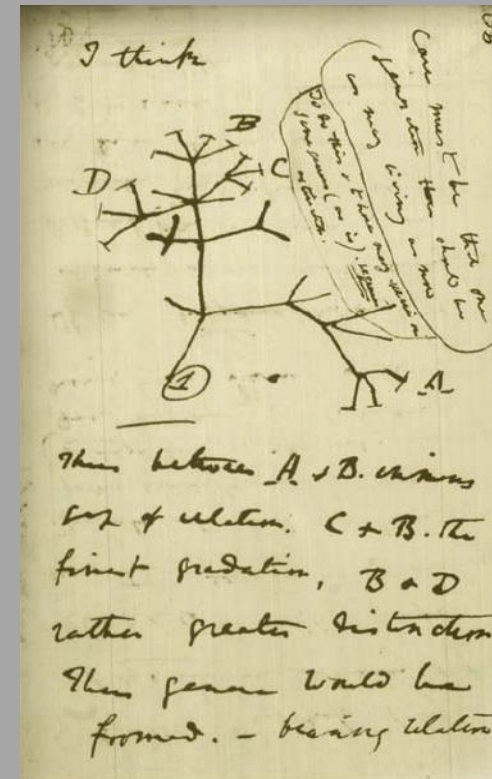 I think
Case must be that one
generation then should be
as many living as now
To do this & to have many species in
same genus (as is). requires
extinction.
B
C
D
A
1
Thus between A & B. immens
gap of relation. C & B. the
finest gradation, B & D
rather greater distinction
Thus genera would be
formed. — bearing relation